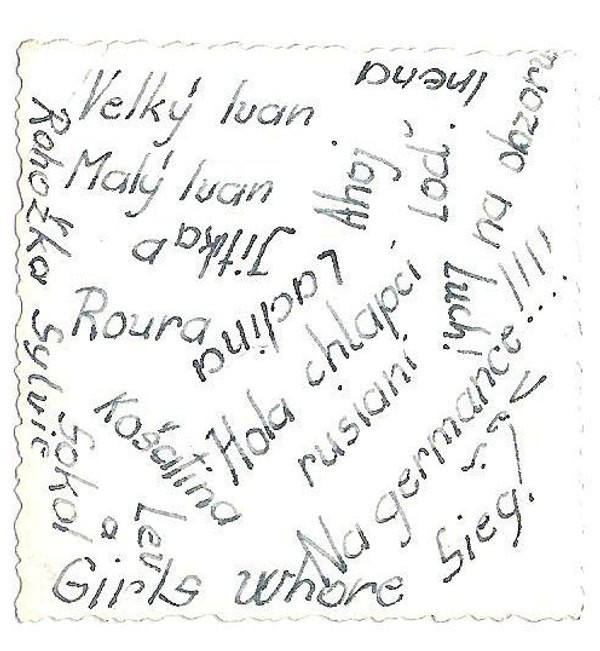 Velký Ivan
Malý Ivan
Jitka a
Roura
Ladina
Košatina
Rohožka Sylvie
Sokol
a
Lev
Girls whore
Irena
Ahoj
Loď
na obzoru
Luch
Hola chlapci
rusiani
Na germance
Sieg!